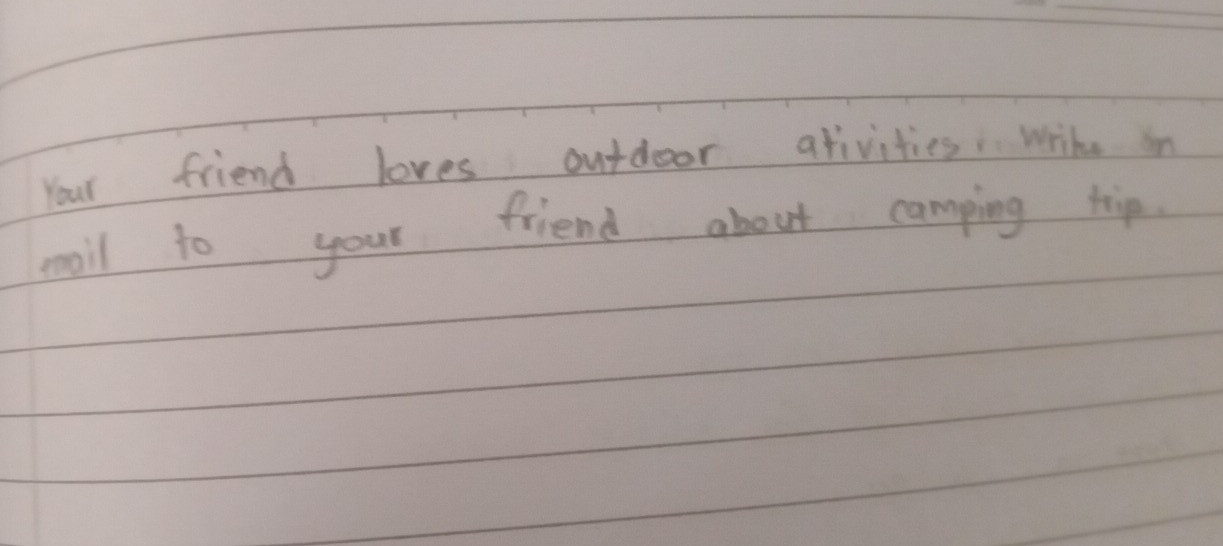 Your friend loves outdoor ativities. Write an
email to your friend about camping trip.